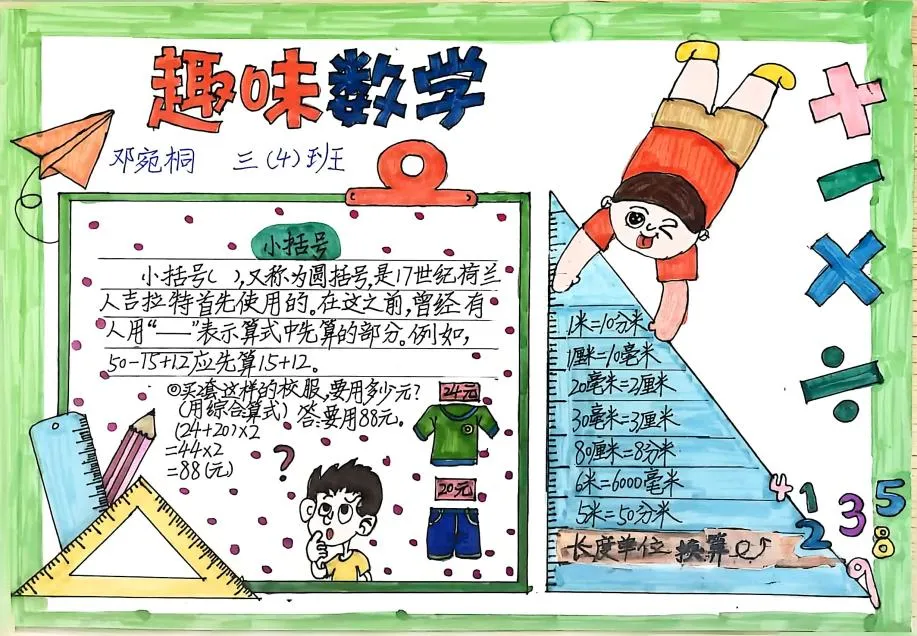 趣味数学
邓宛桐 三(4)班
小括号
小括号( ),又称为圆括号,是17世纪荷兰
人吉拉特首先使用的。在这之前,曾经有
人用“——”表示算式中先算的部分。例如,
50-15+12应先算15+12。
◎买2套这样的校服,要用多少元?
(用综合算式) 答:要用88元。
(24+20)×2
=44×2
=88(元)
24元
20元
?
1米=10分米
1厘米=10毫米
20毫米=2厘米
30毫米=3厘米
80厘米=8分米
6米=6000毫米
5米=50分米
长度单位 换算
+
-
×
÷
4 1 2 3 5 8 9